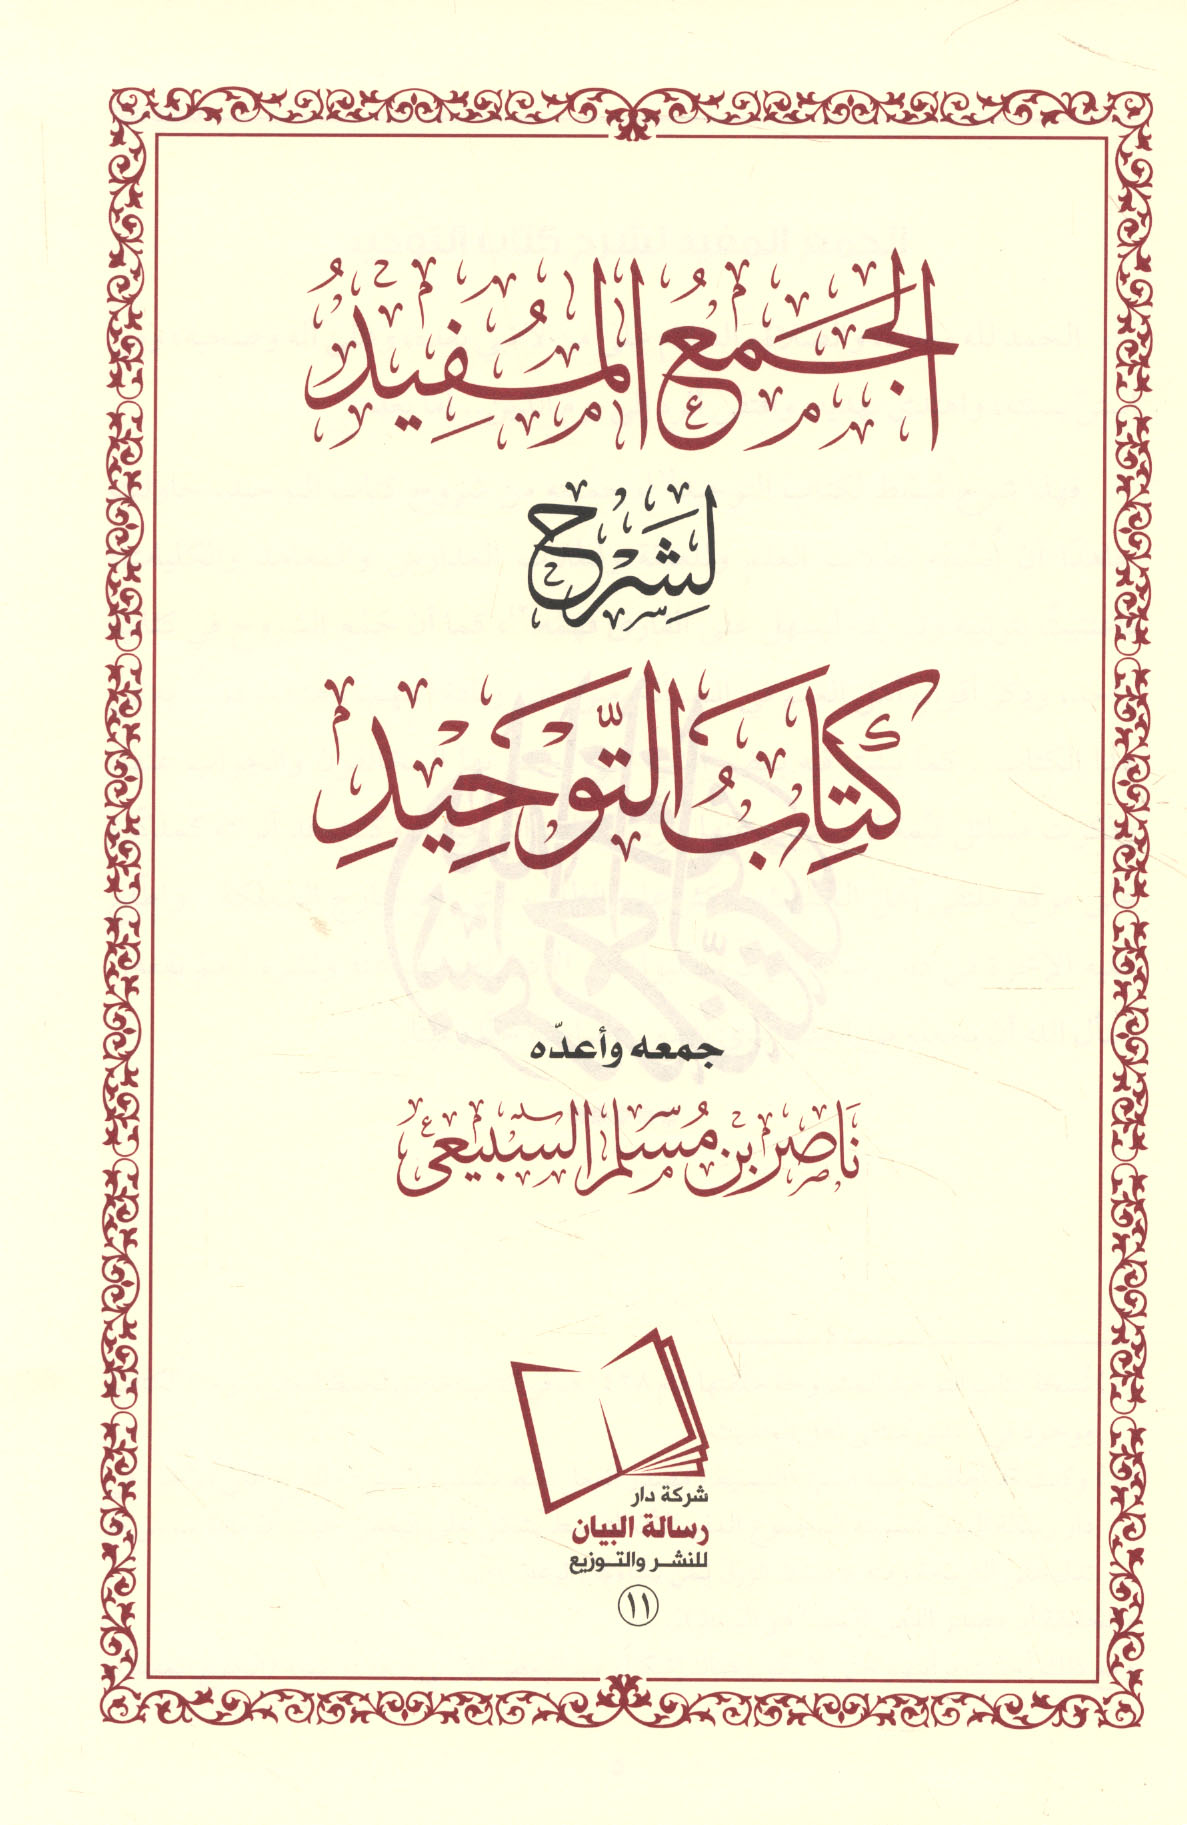 الجَمعُ المُفِيدُ
لِشَرحِ
كِتَابُ التَّوحِيدِ
جمعه وأعدّه
نَاصر بن مُسلم السبيعي
شركة دار
رسالة البيان
للنشر والتوزيع
١١